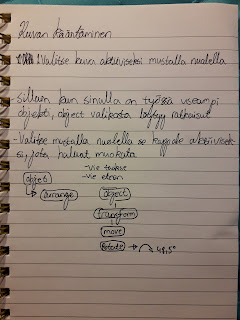 Kuvan kääntäminen
Valitse kuva aktiiviseksi mustalla nuolella
-Silloin kun sinulla on työssä useampi
objekti, object valikosta löytyy ratkaisut
-Valitse mustalla nuolella se kappale aktiivisek
si, jota haluat muokata
-Vie taakse
-Vie eteen
object
arrange
object
transform
move
Rotate